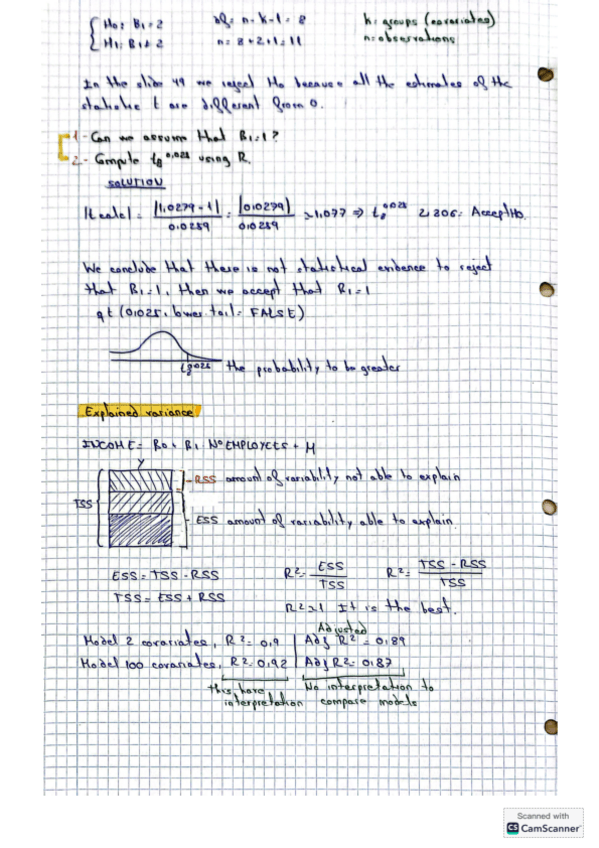 H0: B1 = 2 df = n - k - 1 = 8 k = groups (covariates)
H1: B1 ≠ 2 n = 8 + 2 + 1 = 11 n = observations
In the slide 49 we reject H0 because all the estimates of the
statistic t are different from 0.
1 - Can we assume that B1 = 1?
2 - Compute t8^0.025 using R.
SOLUTION
|t calc| = |1,0279 - 1| / 0,0259 = |0,0279| / 0,0259 ≈ 1,077 ⇒ t8^0.025 2,306: Accept H0.
We conclude that there is not statistical evidence to reject
that B1 = 1, then we accept that B1 = 1
qt (0,025, lower tail = FALSE)
t8^0.025 the probability to be greater
Explained variance
INCOME = B0 + B1 No EMPLOYEES + M
Y
RSS amount of variability not able to explain
TSS
ESS amount of variability able to explain
ESS = TSS - RSS R² = ESS / TSS R² = TSS - RSS / TSS
TSS = ESS + RSS
R² ≈ 1 It is the best.
Adjusted
Model 2 covariates, R² = 0,9 | Adj R² = 0,89
Model 100 covariates, R² = 0,92 | Adj R² = 0,87
this have No interpretation to
interpretation compare models
Scanned with
CS CamScanner